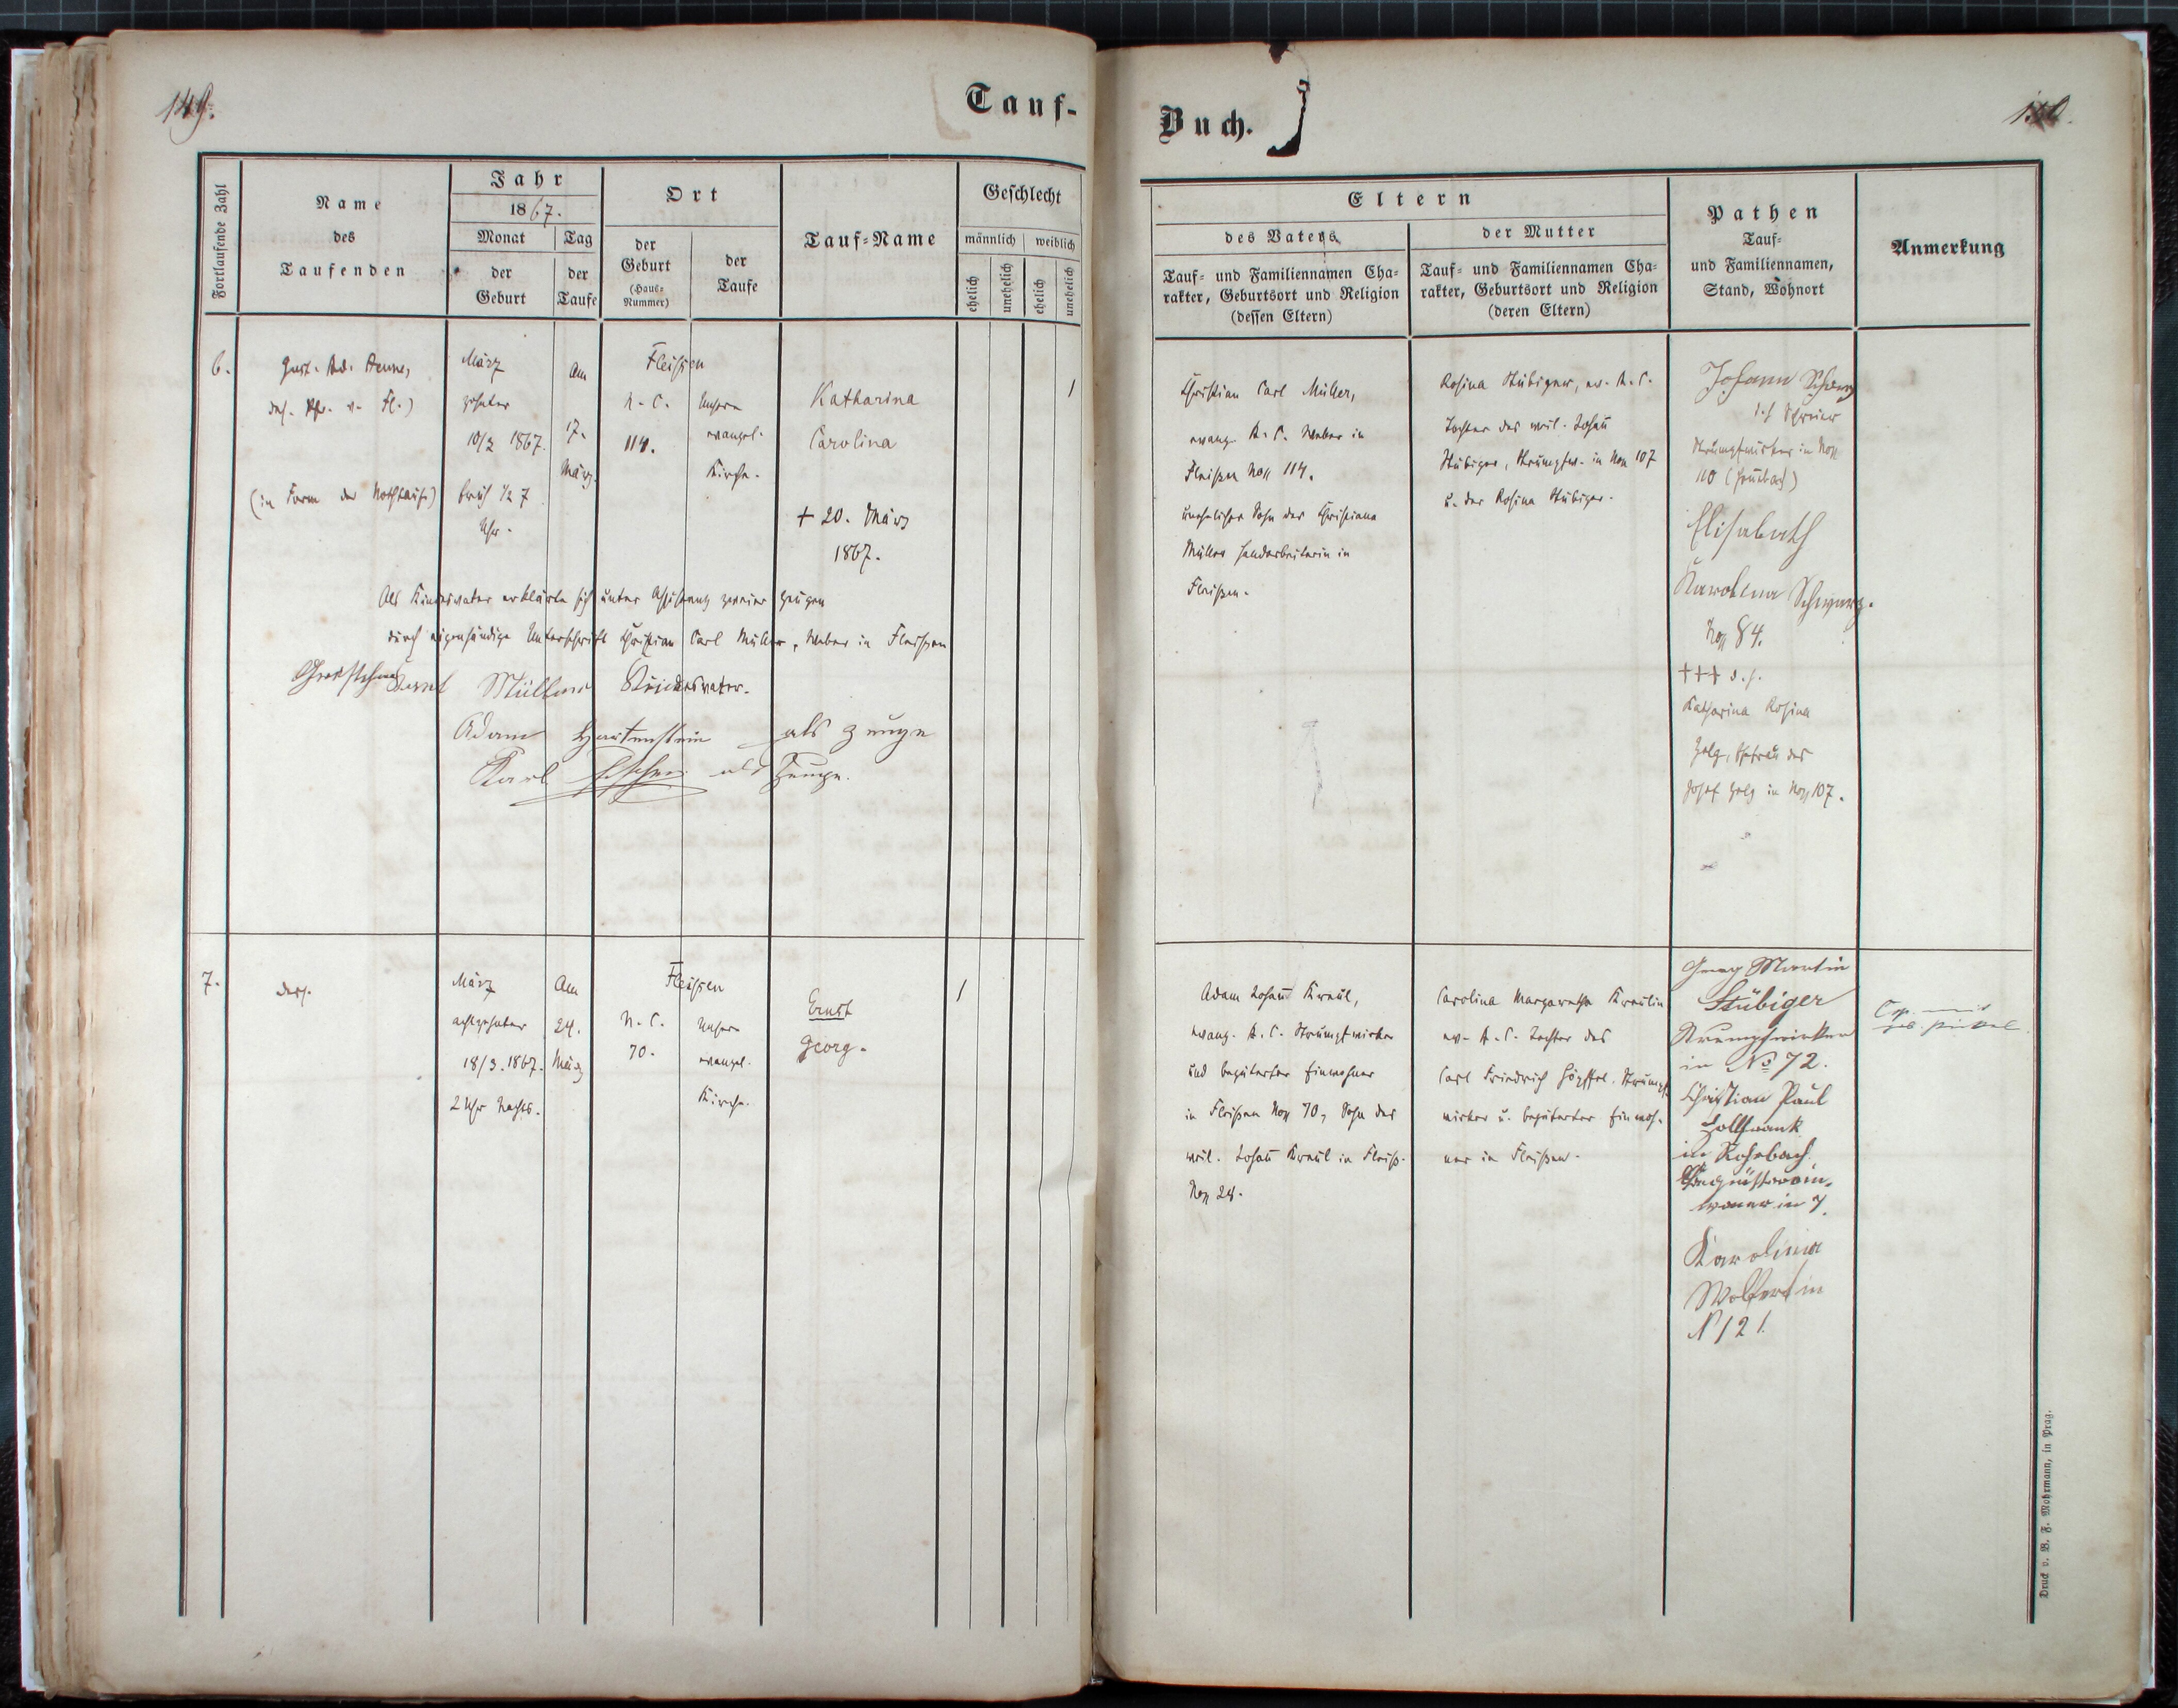 149.
Tauf-
Fortlaufende Zahl
Name
des
Taufenden
Jahr
1867.
Monat
der
Geburt
Tag
der
Taufe
Ort
der
Geburt
(Haus-
Nummer)
der
Taufe
Tauf-Name
Geschlecht
männlich
weiblich
ehelich
unehelich
ehelich
unehelich
6.
Gust. Ad.
des. Pfr. v. Fl.)
(in Form der Nothtaufe)
März
zehnter
10/3 1867.
früh 1/2 7
Uhr.
Am
17.
März.
Fleissen
N. C.
114.
Unsere
evangel.
Kirche.
Katharina
Carolina
+ 20. März
1867.
1
Als Kindesvater erklärte sich unter Assistenz zweier Zeugen
durch eigenhändige Unterschrift Christian Carl Müller, Weber in Fleissen
Müller Kindesvater.
Adam Hartenstein als Zeuge
Karl als Zeuge.
7.
ders.
März
achtzehnter
18/3. 1867.
2 Uhr Nachts.
Am
24.
März
Fleissen
N. C.
70.
Unsere
evangel.
Kirche.
Ernst
Georg.
1
Buch.
150.
Eltern
des Vaters
Tauf- und Familiennamen Cha-
rakter, Geburtsort und Religion
(dessen Eltern)
der Mutter
Tauf- und Familiennamen Cha-
rakter, Geburtsort und Religion
(deren Eltern)
Pathen
Tauf-
und Familiennamen,
Stand, Wohnort
Anmerkung
Christian Carl Müller,
evang. A. C. Weber in
Fleißen No 114.
unehelicher Sohn der Christiana
Müller Handarbeiterin in
Fleißen.
Rosina Stübiger, ev. A. C.
Tochter des weil. Johañ
Stübiger, Strumpfw. in No 107
u. der Rosina Stübiger.
Johann
Strumpfwirker in No
110
Elisabeth
Karolina
No 84.
+++ d. h.
Katharina Rosina
Ehefrau des
Josef in No 107.
Adam Johañ Kraul,
evang. A. C. Strumpfwirker
und begüterter Einwohner
in Fleißen No 70, Sohn des
weil. Johañ Kraul in Fleiß.
No 28.
Carolina Margaretha Kraulin
ev. A. C. Tochter des
Carl Friedrich Höpffel. Strumpf-
wirker u. begüterter Einwoh-
ner in Fleißen.
Georg Martin
Stübiger
Strumpfwirker
in No 72.
Christian Paul
in Roßbach
in 7.
Karolina
N 121.
Cop. mit
geb.
Druck v. B. F. Mohrmann, in Prag.